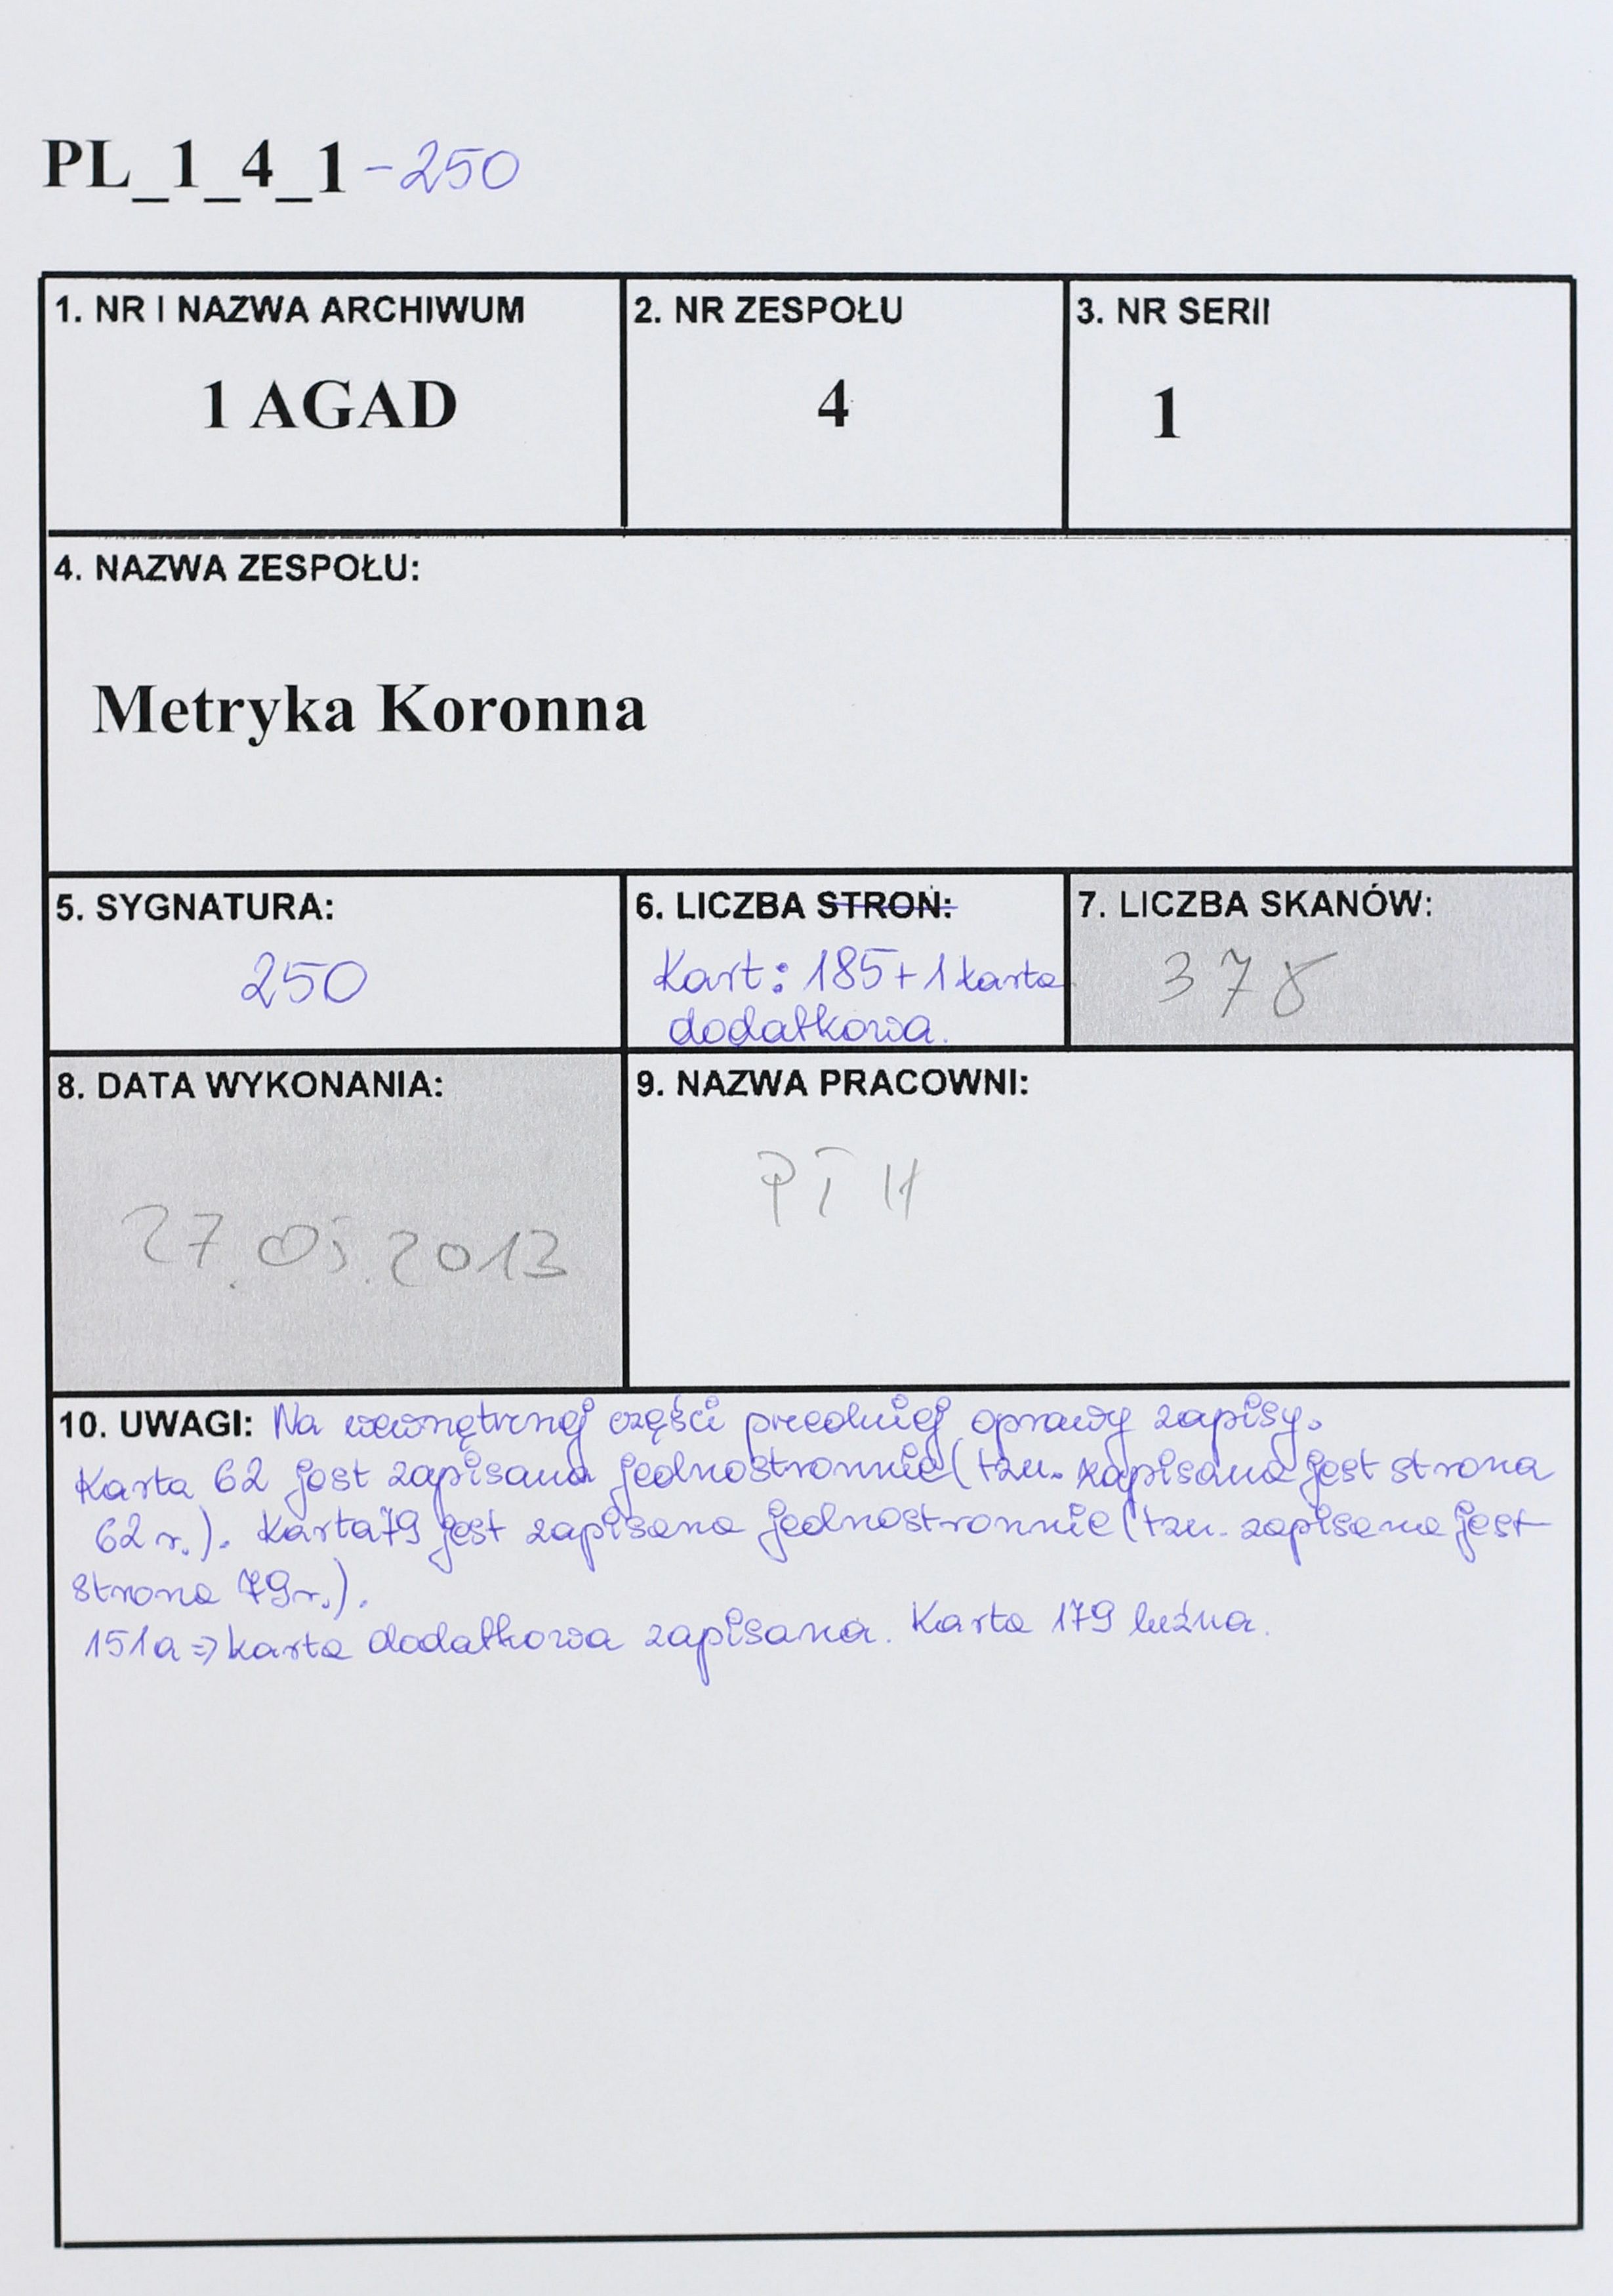 PL_1_4_1 - 250
1. NR I NAZWA ARCHIWUM
1 AGAD
2. NR ZESPOŁU
4
3. NR SERII
1
4. NAZWA ZESPOŁU:
Metryka Koronna
5. SYGNATURA:
250
6. LICZBA STRON:
Kart: 185 + 1 karta
dodatkowa.
7. LICZBA SKANÓW:
378
8. DATA WYKONANIA:
27.05.2013
9. NAZWA PRACOWNI:
PTH
10. UWAGI: Na wewnętrznej części przedniej oprawy zapisy.
Karta 62 jest zapisana jednostronnie (tzn. zapisana jest strona
62 r.). Karta 79 jest zapisana jednostronnie (tzn. zapisana jest
strona 79r.).
151a => karta dodatkowa zapisana. Karta 179 luźna.